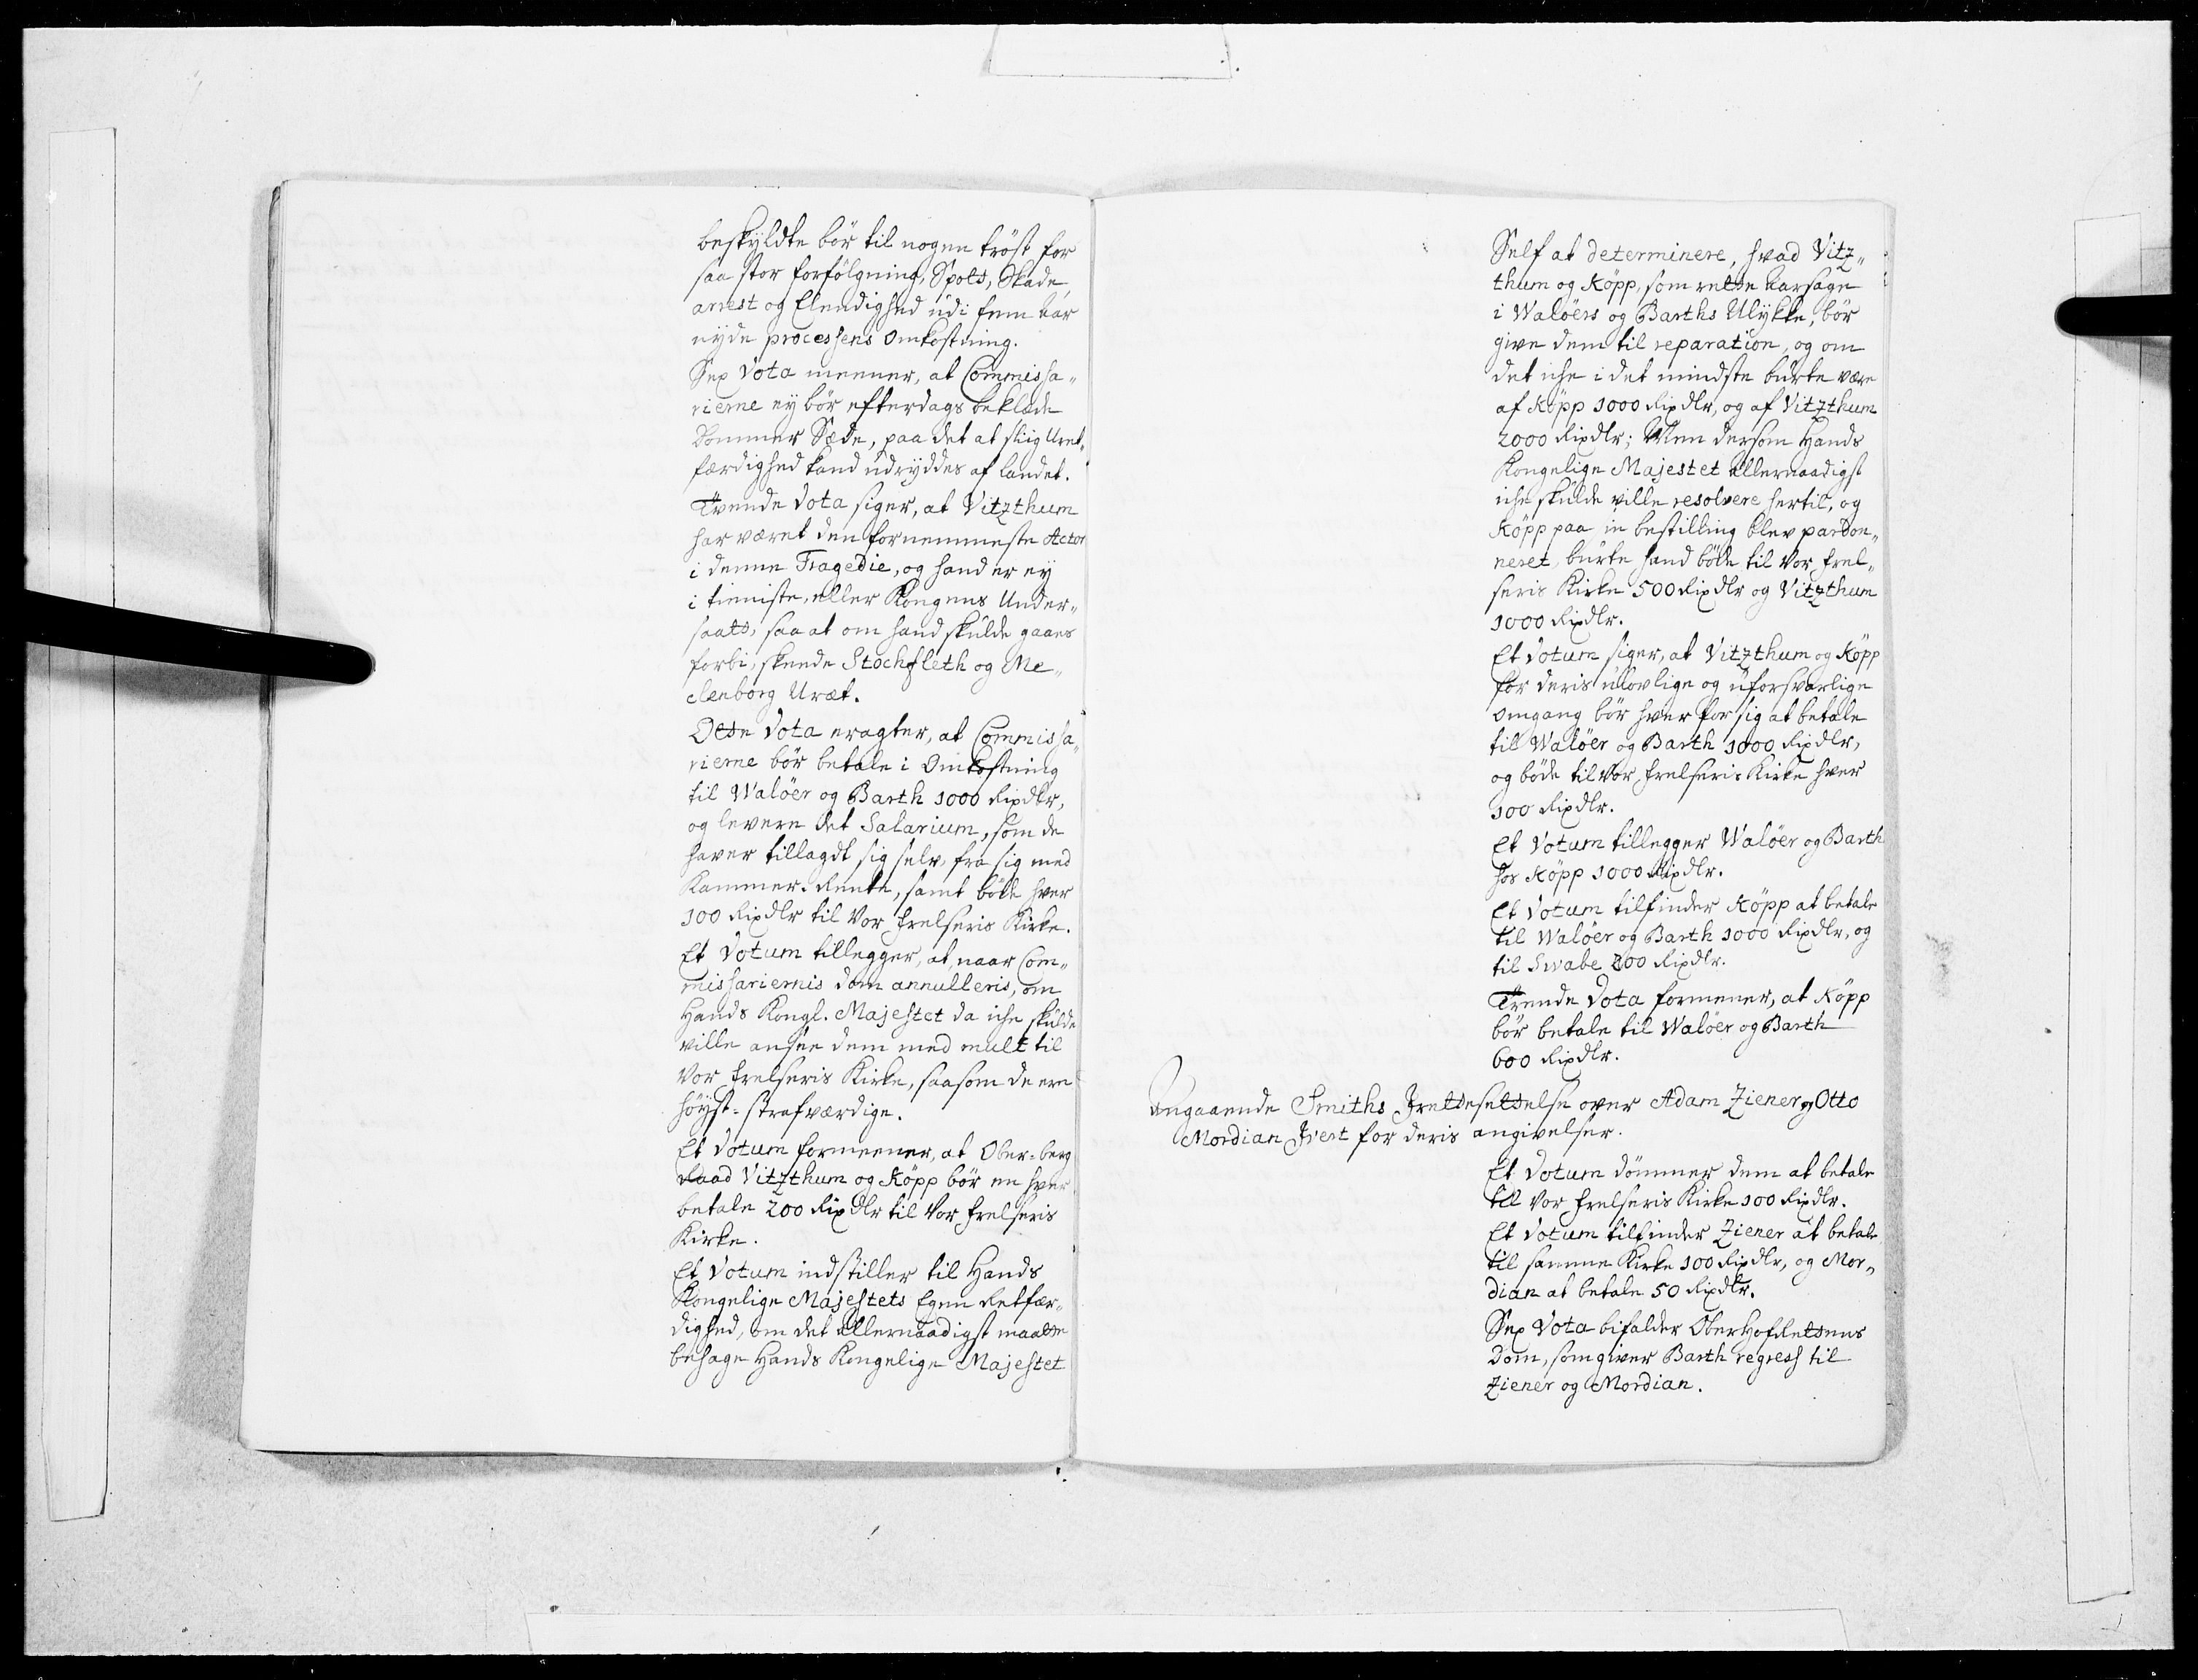 beskyldte bör til nogen tröst for
saa stor forfölgning, Spots, Skade,
arrest og Elendighed udi fem aar
nyde processens omkostning.
Sex Vota meener, at Commissa„
rierne ey bör efterdags beklæde
Dommer Sæde, paa det at sliig Uret„
færdighed kand udryddes af landet.
Trende Vota siger, at Vitzthum
har været den fornemmeste Actor
i denne Tragedie, og hand er ey
i tieniste, eller Kongens Under„
saats, saa at om hand skulde gaaes
forbi, skeede Stochfleth og Me„
clenborg Uræt.
Otte Vota eragter, at Commissa„
rierne bör betale i Omkostning
til Walöer og Barth 1000 Rixdlr,
og levere det Salarium, som de
haver tillagdt sig selv, fra sig med
Kammer-Rente, samt böde hver
100 Rixdlr til Vor Frelseris Kirke.
Et Votum tillegger, at, naar Com„
missariernis dom annulleris, om
Hands Kongl. Majestet da iche skulde
ville ansee dem med mult til
Vor Frelseris Kirke, saasom de ere
höyst-strafværdige.
Et Votum formeener, at Ober-berg
Raad Vitzthum og Köpp bör en hver
betale 200 Rixdlr til Vor Frelseris
Kirke.
Et Votum indstiller til Hands
Kongelige Majestets Egen Retfær„
dighed, om det allernaadigst maatte
behage Hands Kongelige Majestet
Self at determinere, hvad Vitz„
thum og Köpp, som rette aarsage
i Walöers og Barths Ulykke, bör
give dem til reparation, og om
det iche i det mindste burte være
af Köpp 1000 Rixdlr, og af Vitzthum
2000 Rixdlr; Men dersom Hands
Kongelige Majestet allernaadigst
iche skulde ville resolvere hertil, og
Köpp paa in bestilling blev pardon„
neret, burte hand böde til Vor Frel„
seris Kirke 500 Rixdlr og Vitzthum
1000 Rixdlr.
Et Votum siger, at Vitzthum og Köpp
for deris ulovlige og uforsvarlige
omgang bör hver for sig at betale
til Walöer og Barth 1000 Rixdlr,
og böde til Vor Frelseris Kirke hver
100 Rixdlr.
Et Votum tillegger Walöer og Barth
hos Köpp 1000 Rixdlr.
Et Votum tilfinder Köpp at betale
til Walöer og Barth 1000 Rixdlr, og
til Swabe 200 Rixdlr.
Trende Vota formener, at Köpp
bör betale til Walöer og Barth
600 Rixdlr.
Angaaende Smiths Irettesettelse over Adam Ziener og Otto
Mordian Ivert for deris angivelser.
Et Votum dömmer dem at betale
til Vor Frelseris Kirke 100 Rixdlr.
Et Votum tilfinder Ziener at betale
til samme Kirke 100 Rixdlr, og Mor„
dian at betale 50 Rixdlr.
Sex Vota bifalder OberHofRettens
Dom, som giver Barth regress til
Ziener og Mordian.